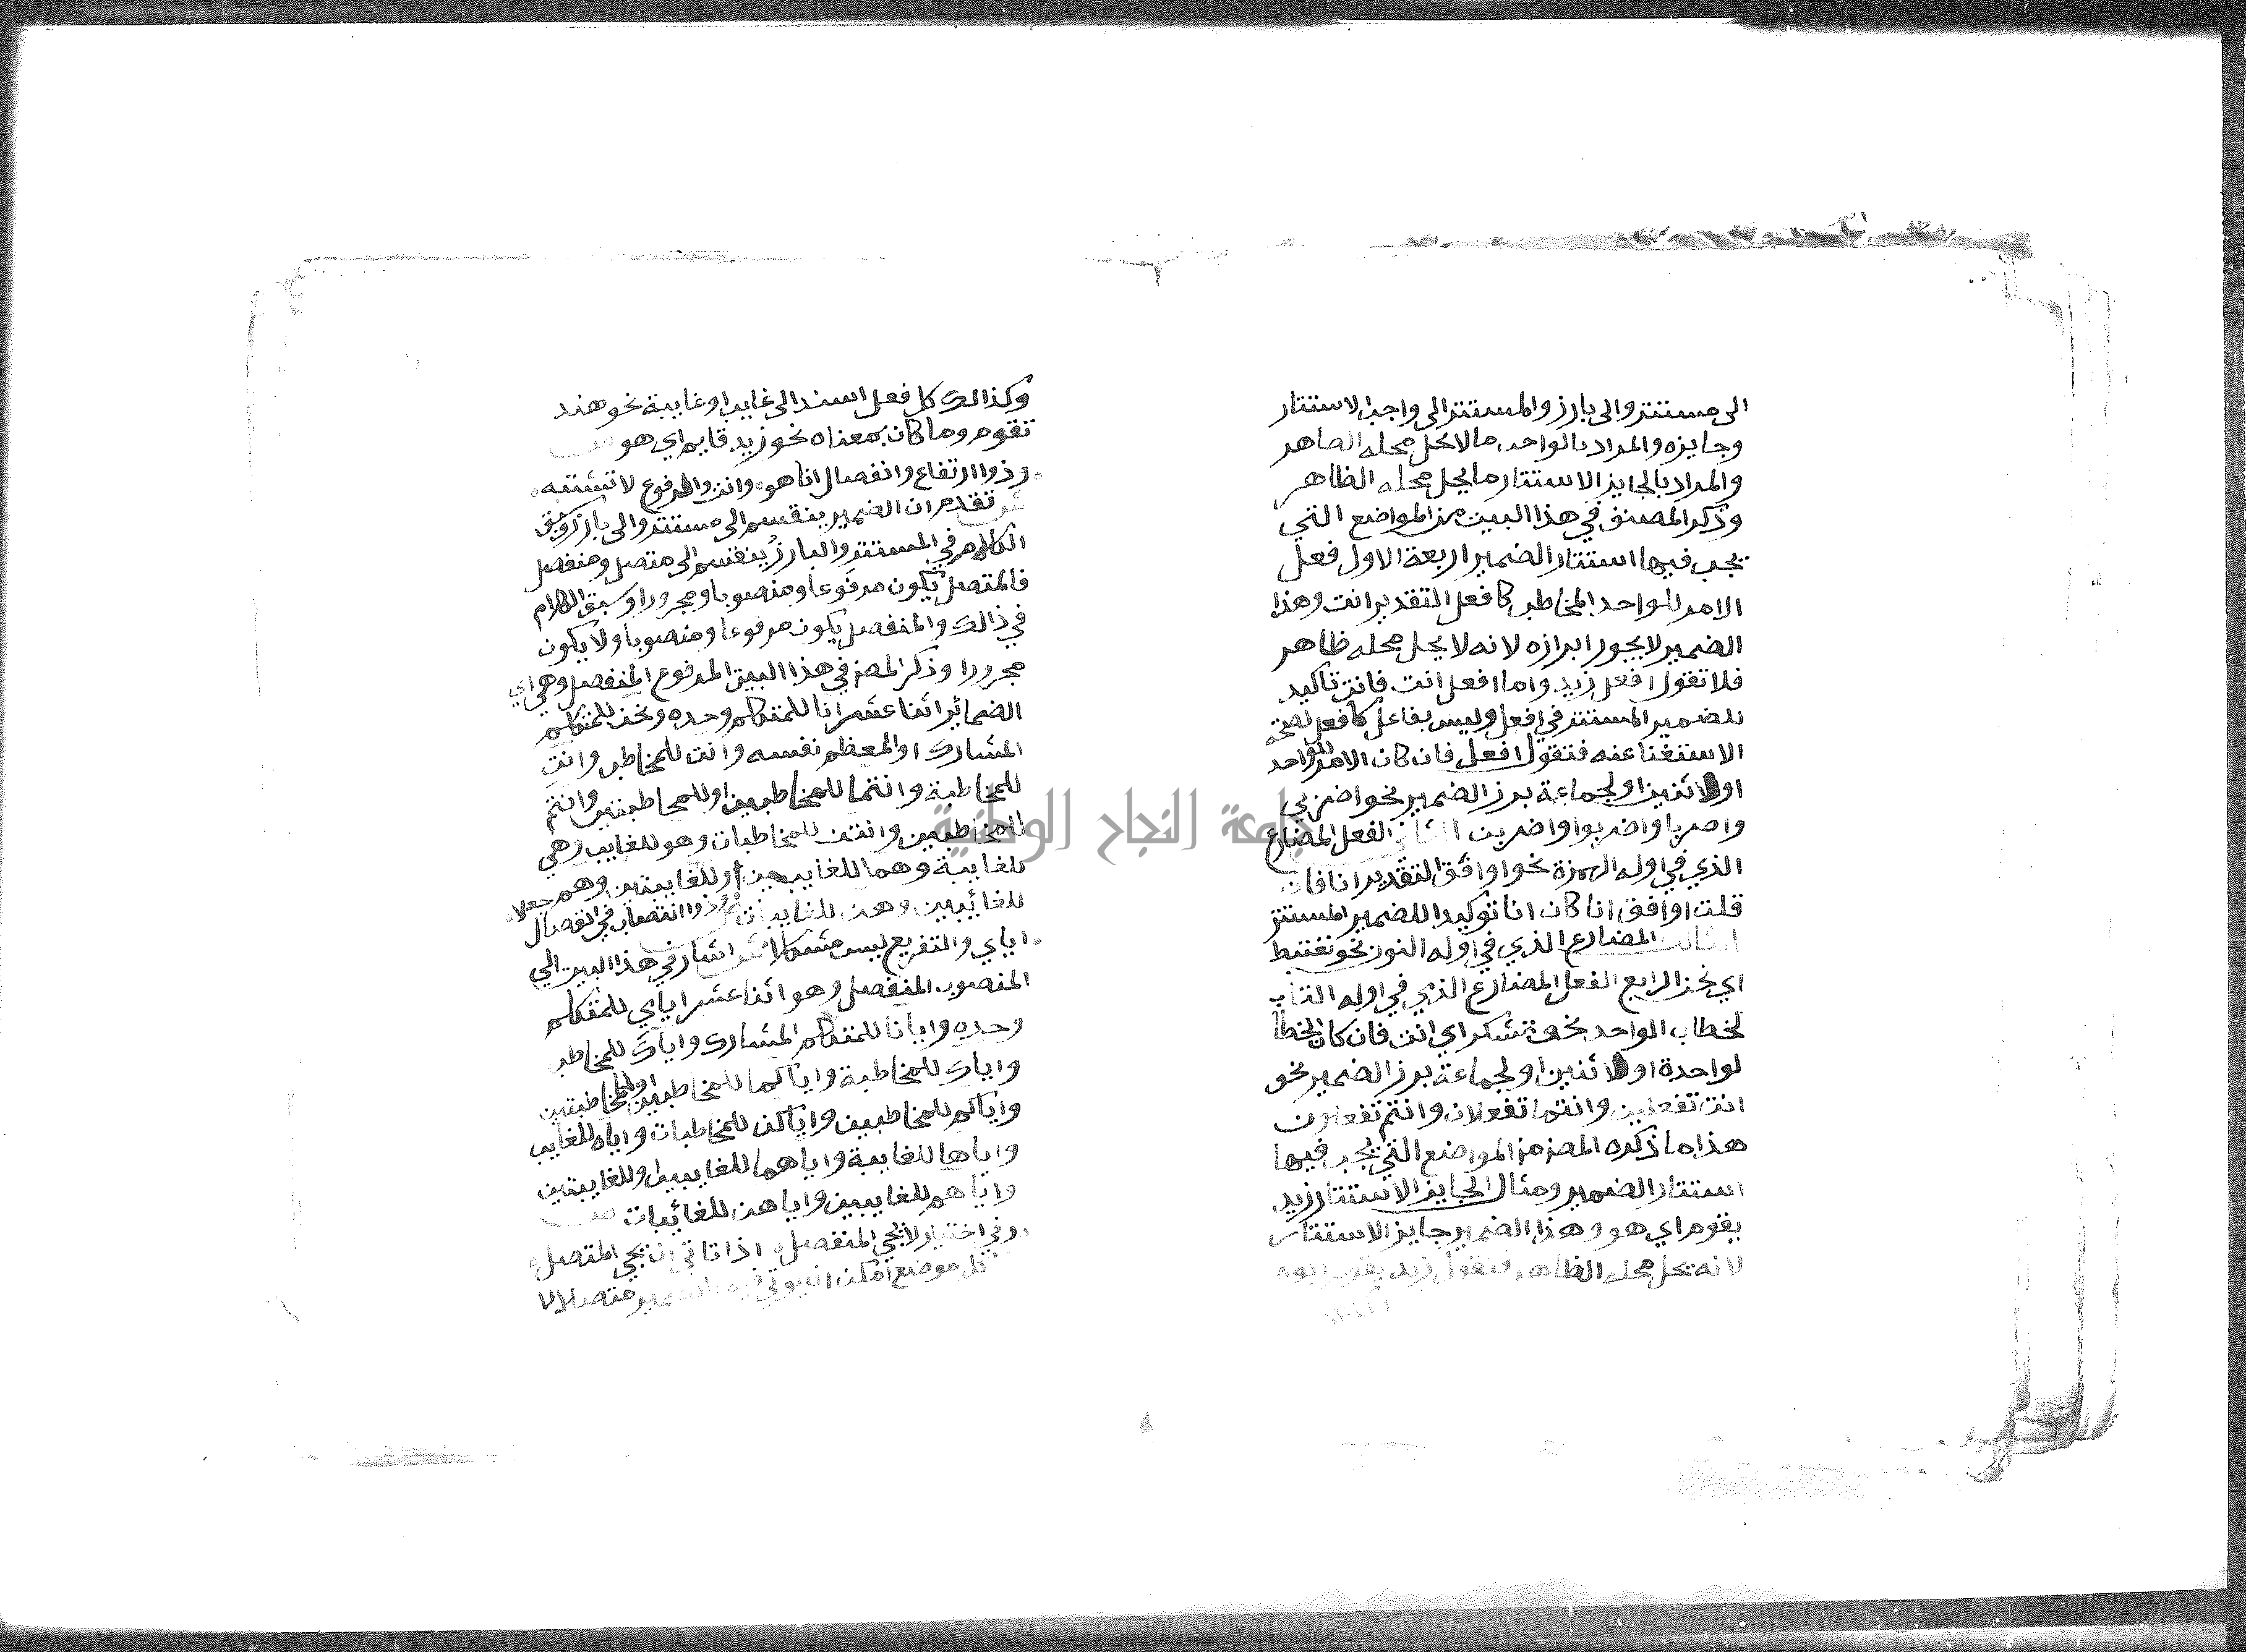 الى مستتر والى بارز والمستتر الى واجب الاستتار
وجايزه والمراد بالواجب ما لا يحل محله الظاهر
والمراد بالجايز الاستتار ما يحل محله الظاهر
وذكر المصنف في هذا البيت من المواضع التي
يجب فيها استتار الضمير اربعة الاول فعل
الامر للواحد المخاطب كافعل التقدير انت وهذا
الضمير لا يجوز ابرازه لانه لا يحل محله ظاهر
فلا تقول افعل زيد واما افعل انت فانت تاكيد
للضمير المستتر في افعل وليس بفاعل لافعل لصحة
الاستغنا عنه فتقول افعل فان كان الامر لواحدة
او لاثنين او لجماعة برز الضمير نحو اضربي
واضربا واضربوا واضربن الثاني الفعل المضارع
الذي في اوله الهمزة نحو اوافق التقدير انا فان
قلت اوافق انا كان انا توكيدا للضمير المستتر
الثالث المضارع الذي في اوله النون نحو نغتبط
اي نحن الرابع الفعل المضارع الذي في اوله التاء
لخطاب الواحد نحو تشكر اي انت فان كان الخطاب
لواحدة او لاثنين او لجماعة برز الضمير نحو
انت تفعلين وانتما تفعلان وانتم تفعلون
هذا ما ذكره المص من المواضع التي يجب فيها
استتار الضمير ومثال الجايز الاستتار زيد
يقوم اي هو وهذا الضمير جايز الاستتار
لانه يحل محله الظاهر فتقول زيد يقوم ابوه
وكذالك كل فعل اسند الى غايب او غايبة نحو هند
تقوم وما كان بمعناه نحو زيد قايم اي هو
وذوا ارتفاع وانفصال انا هو وانت والفروع لا تشتبه
تقدم ان الضمير ينقسم الى مستتر والى بارز وسبق
الكلام في المستتر والبارز ينقسم الى متصل ومنفصل
فالمتصل يكون مرفوعا ومنصوبا ومجرورا وسبق الكلام
في ذالك والمنفصل يكون مرفوعا ومنصوبا ولا يكون
مجرورا وذكر المص في هذا البيت المرفوع المنفصل وهي اي
الضمائر اثنا عشر انا للمتكلم وحده ونحن للمتكلم
المشارك او المعظم نفسه وانت للمخاطب وانت
للمخاطبة وانتما للمخاطبين او للمخاطبتين وانتم
للمخاطبين وانتن للمخاطبات وهو للغايب وهي
للغايبة وهما للغايبين او للغايبتين وهم
للغائبين وهن للغايبات وذوا انتصاب في انفصال جعلا
اياي والتفريع ليس مشكلا اشار في هذا البيت الى
المنصوب المنفصل وهو اثنا عشر اياي للمتكلم
وحده وايانا للمتكلم المشارك واياك للمخاطب
واياك للمخاطبة واياكما للمخاطبين او للمخاطبتين
واياكم للمخاطبين واياكن للمخاطبات واياه للغايب
واياها للغايبة واياهما للغايبين او للغايبتين
واياهم للغايبين واياهن للغائبات
وفي اختيار لا يجي المنفصل اذا تاتى ان يجي المتصل
كل موضع امكن ان يوتى فيه بالضمير متصلا لا
جامعة النجاح الوطنية